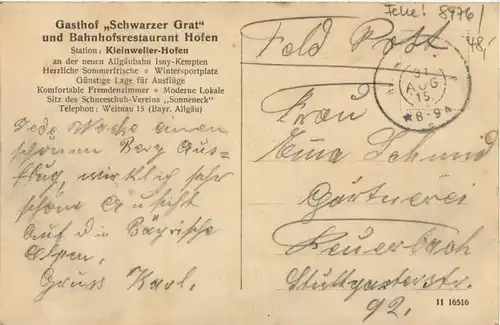 Gasthof „Schwarzer Grat"
und Bahnhofsrestaurant Hofen
Station: Kleinweiler-Hofen
an der neuen Allgäubahn Isny-Kempten
Herrliche Sommerfrische • Wintersportplatz
Günstige Lage für Ausflüge
Komfortable Fremdenzimmer • Moderne Lokale
Sitz des Schneeschuh-Vereins „Sonneneck"
Telephon: Weitnau 15 (Bayr. Allgäu)
Jede Woche einen
schönen Berg Aus-
flug, wirklich sehr
schöne Aussicht
auf die Bayrische
Alpen.
Gruss Karl.
8976/
48,-
Feld Post
31
AUG
15
★8-9
Frau
Emma Schmid
Gärtnerei
Feuerbach
Stuttgarterstr.
92.
11 16516